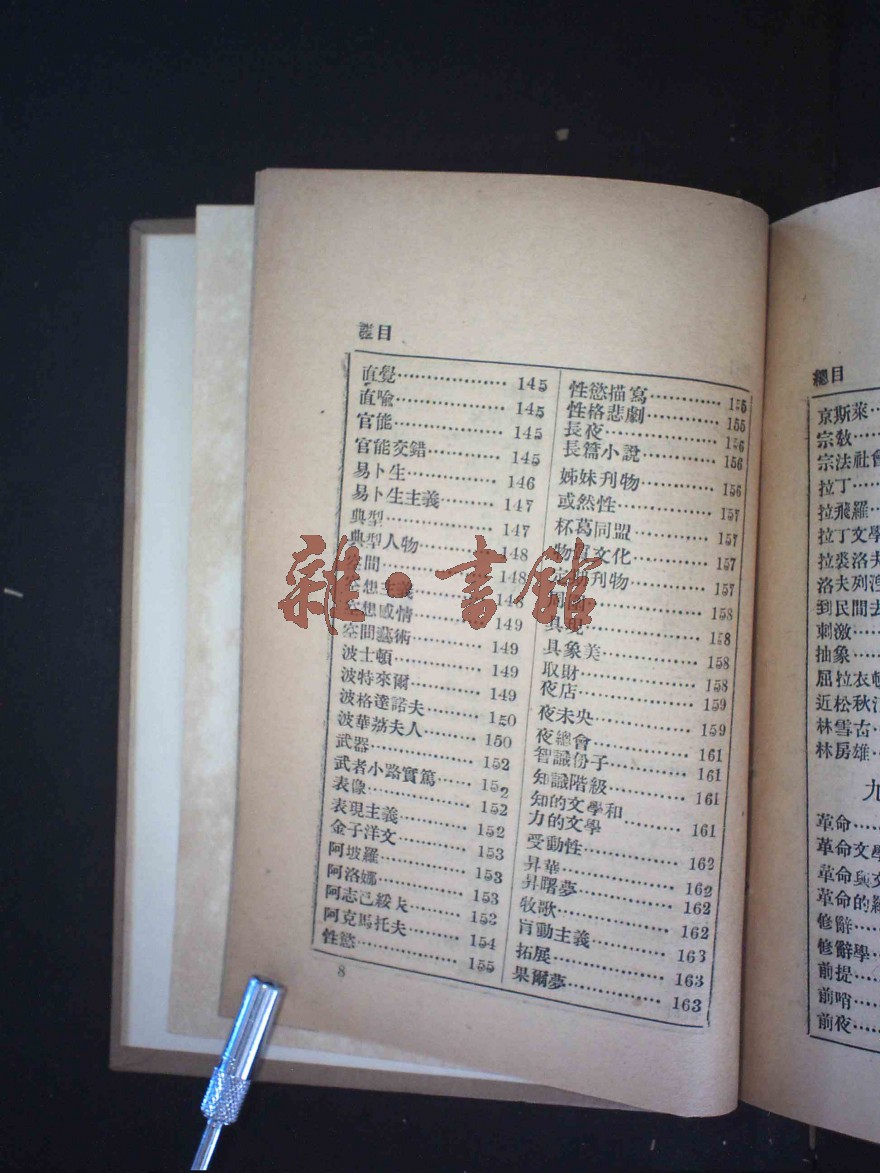 總目
直覺 145
直喩 145
官能 145
官能交錯 145
易卜生 146
易卜生主義 147
典型 147
典型人物 148
空間 148
空想主義 148
空想感情 149
空間藝術 149
波士頓 149
波特來爾 149
波格達諾夫 150
波華荔夫人 150
武器 152
武者小路實篤 152
表像 152
表現主義 152
金子洋文 153
阿坡羅 153
阿洛娜 153
阿志巴綏夫 153
阿克馬托夫 154
性慾 155
8
性慾描寫 155
性格悲劇 155
長夜 156
長篇小說 156
姊妹刋物 156
或然性 157
杯葛同盟 157
物質文化 157
定期刋物 157
158
具現 158
具象美 158
取財 158
夜店 159
夜未央 159
夜總會 161
智識份子 161
知識階級 161
知的文學和
力的文學 161
受動性 162
昇華 162
昇曙夢 162
牧歌 162
盲動主義 163
拓展 163
果爾夢 163
雜·書館
總目
京斯萊
宗敎
宗法社會
拉丁
拉飛羅
拉丁文學
拉裘洛夫
洛夫列涅
到民間去
刺激
抽象
屈拉衣頓
近松秋江
林雪古
林房雄
九
革命
革命文學
革命與文
革命的
修辭
修辭學
前提
前哨
前夜